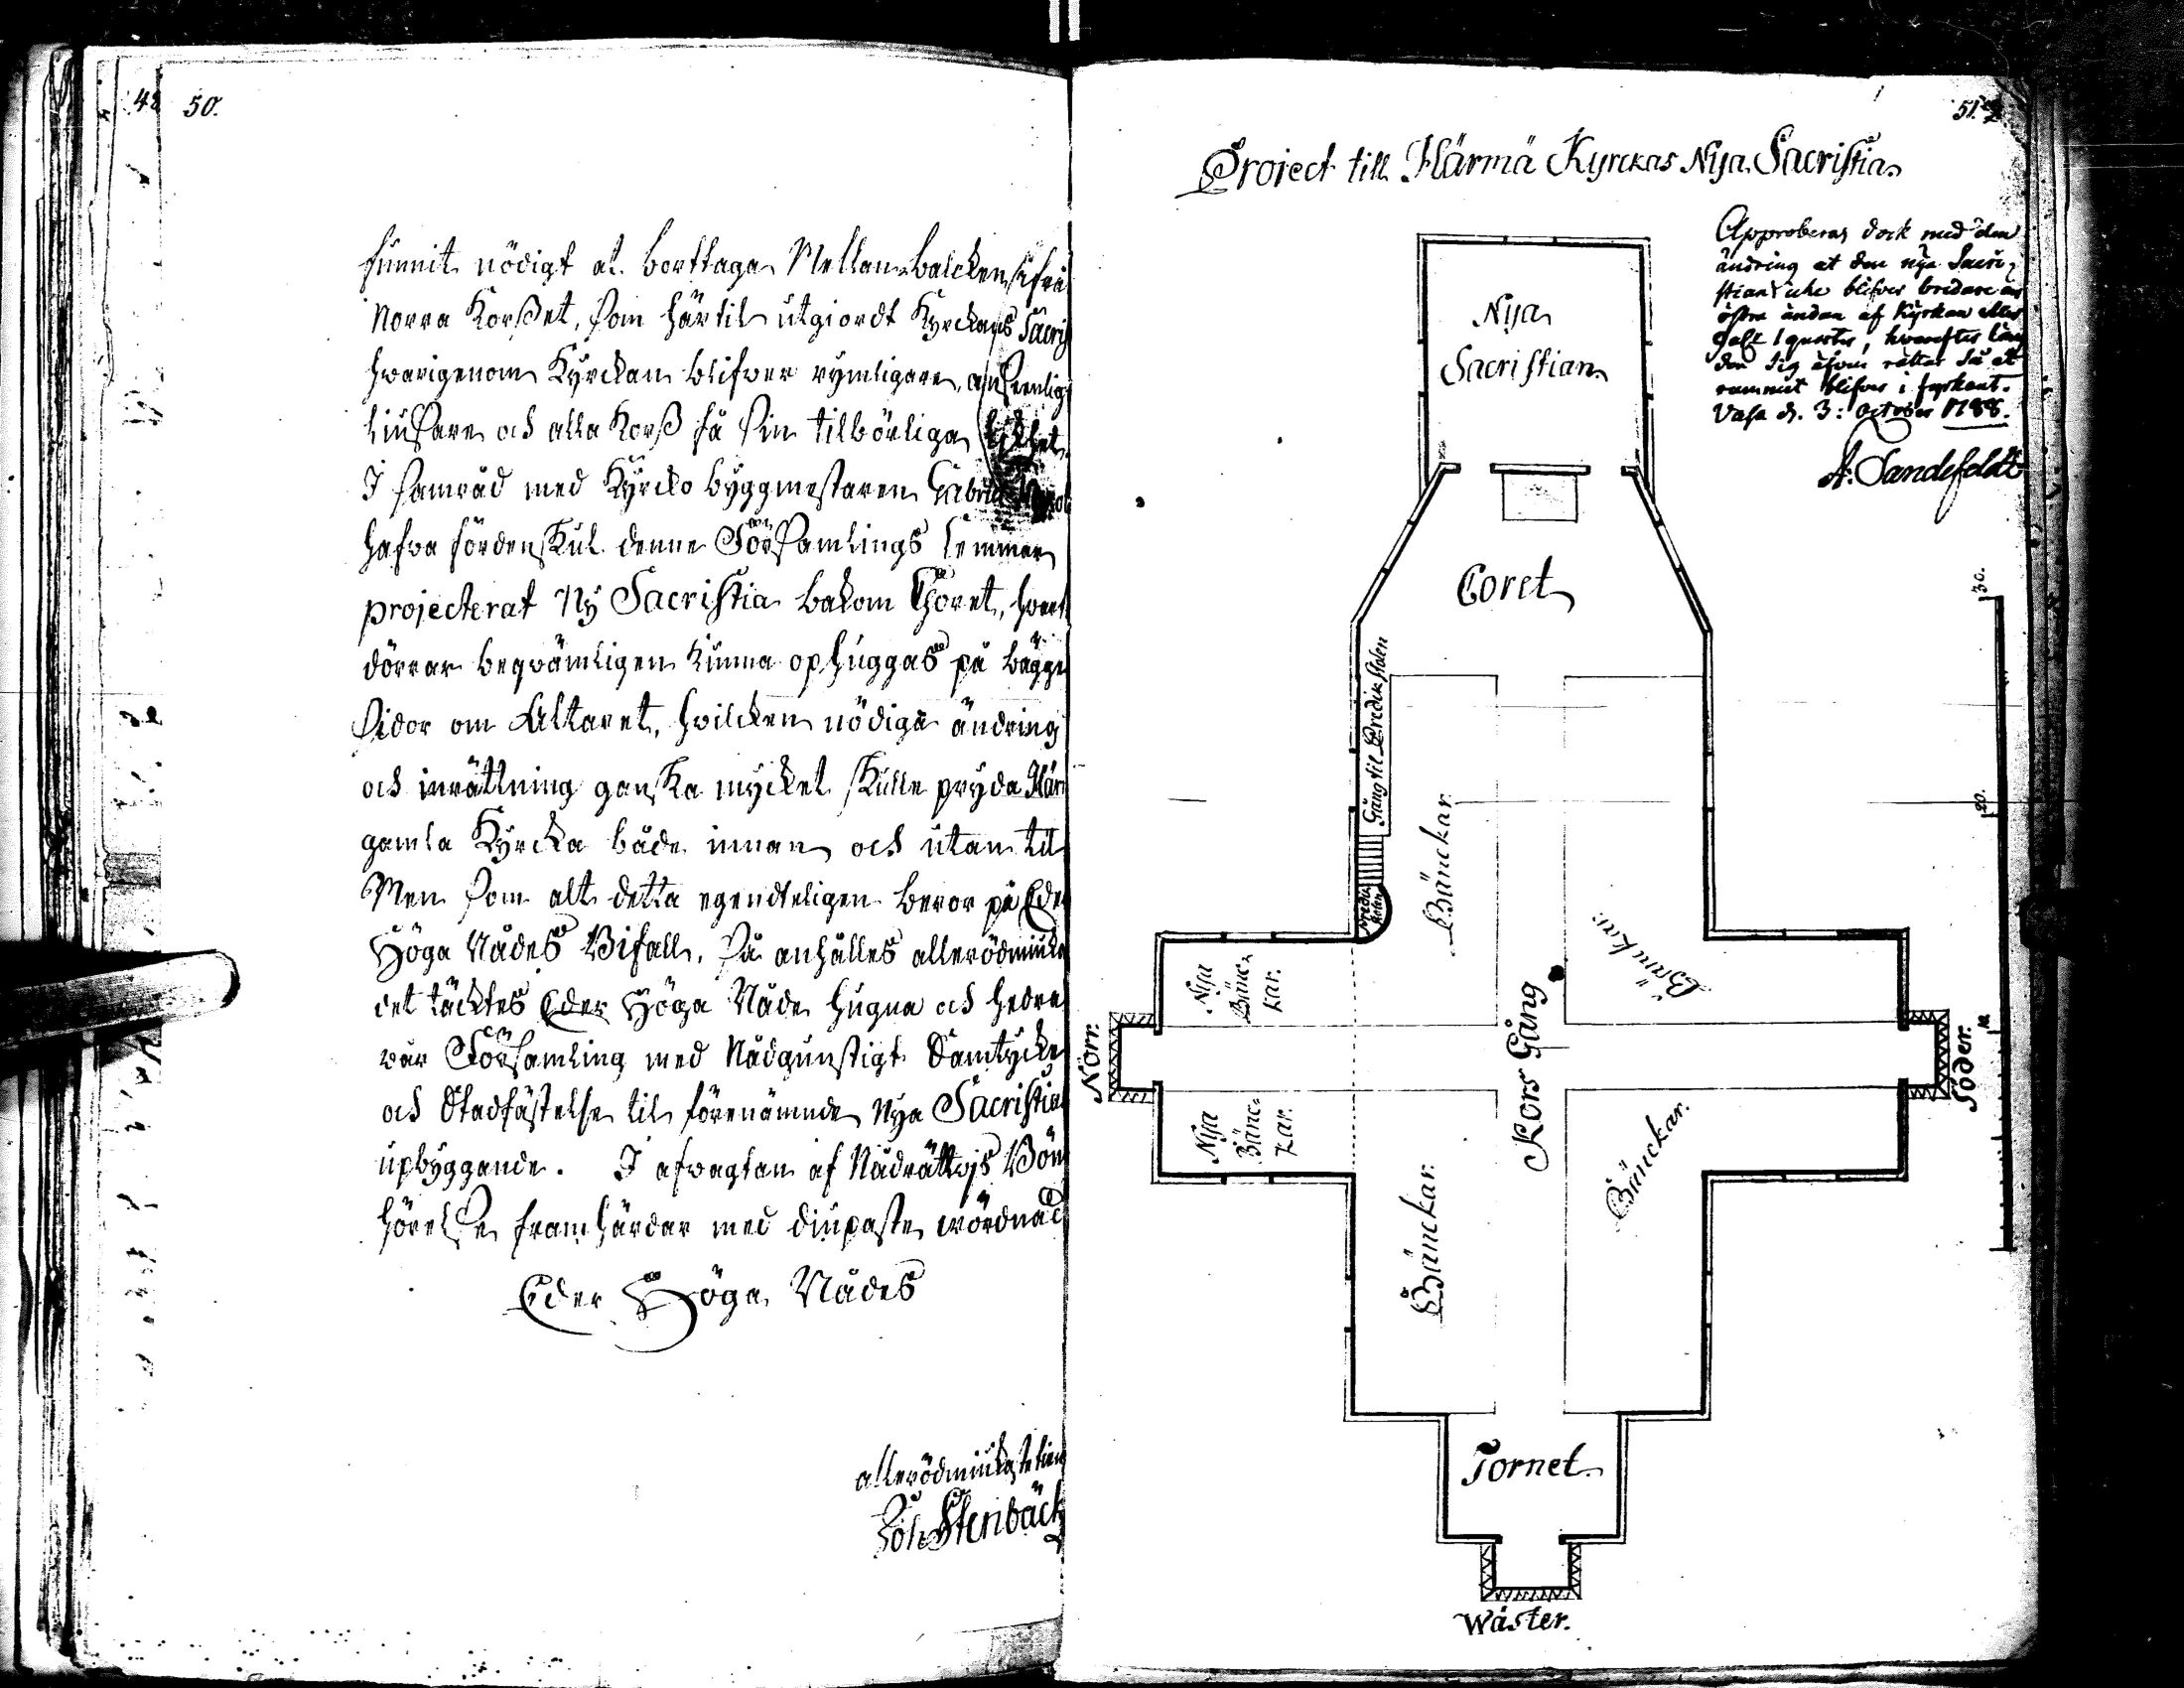 50.
funnit nödigt at borttaga Mellanbalcken ifrå
Norra Korßet, som härtil utgiordt Kyrckans Sacri
hwarigenom Kyrckan blifwer rymligare, ansenlig
liusare och alla Korß få sin tilbörliga
I samråd med Kyrcko byggmestaren Gabriel
hafva fördenskul denne Församlings lemmar
projecterat Ny Sacristia bakom Choret, hvart
dörrar beqvämligen kunna ophuggas på bägge
sidor om Altaret, hvilcken nödiga ändring
och inrättning ganska mycket skulle pryda Här
gamla Kyrcka både innan och utan til
Men som alt detta egendteligen beror på Eder
Höga Nådes Bifall, så anhålles allerödmiuka
det täcktes Eder Höga Nåde hugna och hedra
vår Församling med Nådgunstigt Samtycke
och Stadfästelse til förenämnde Nya Sacristia
upbyggande. I afvagtan af Nådrättvis Bön
hörelse framhärdar med diupaste wördnad
Eder Höga Nådes
allerödmiukaste tien
Joh Stenbäck
51.
Project till Härmä Kyrckas Nya Sacristia
Approberas dock med den
ändring at den nya Sacri
stian icke blifver bredare än
östra ändan af Kyrkan eller
half 1 quarter, hvarefter läng
den sig äfven rättar så at
rummet blifver i fyrkant.
Vasa d. 3: October 1788.
A. Sandefeldt
Nya
Sacristian
Coret
Gång til Predikstolen
Predik
stolen
Bänckar.
Bänckar.
Nya
Bänc
kar.
Kors Gång
Norr.
Söder.
Nya
Bänc
kar.
Bänckar.
Bänckar.
Tornet
Wäster.
30.
20.
10.